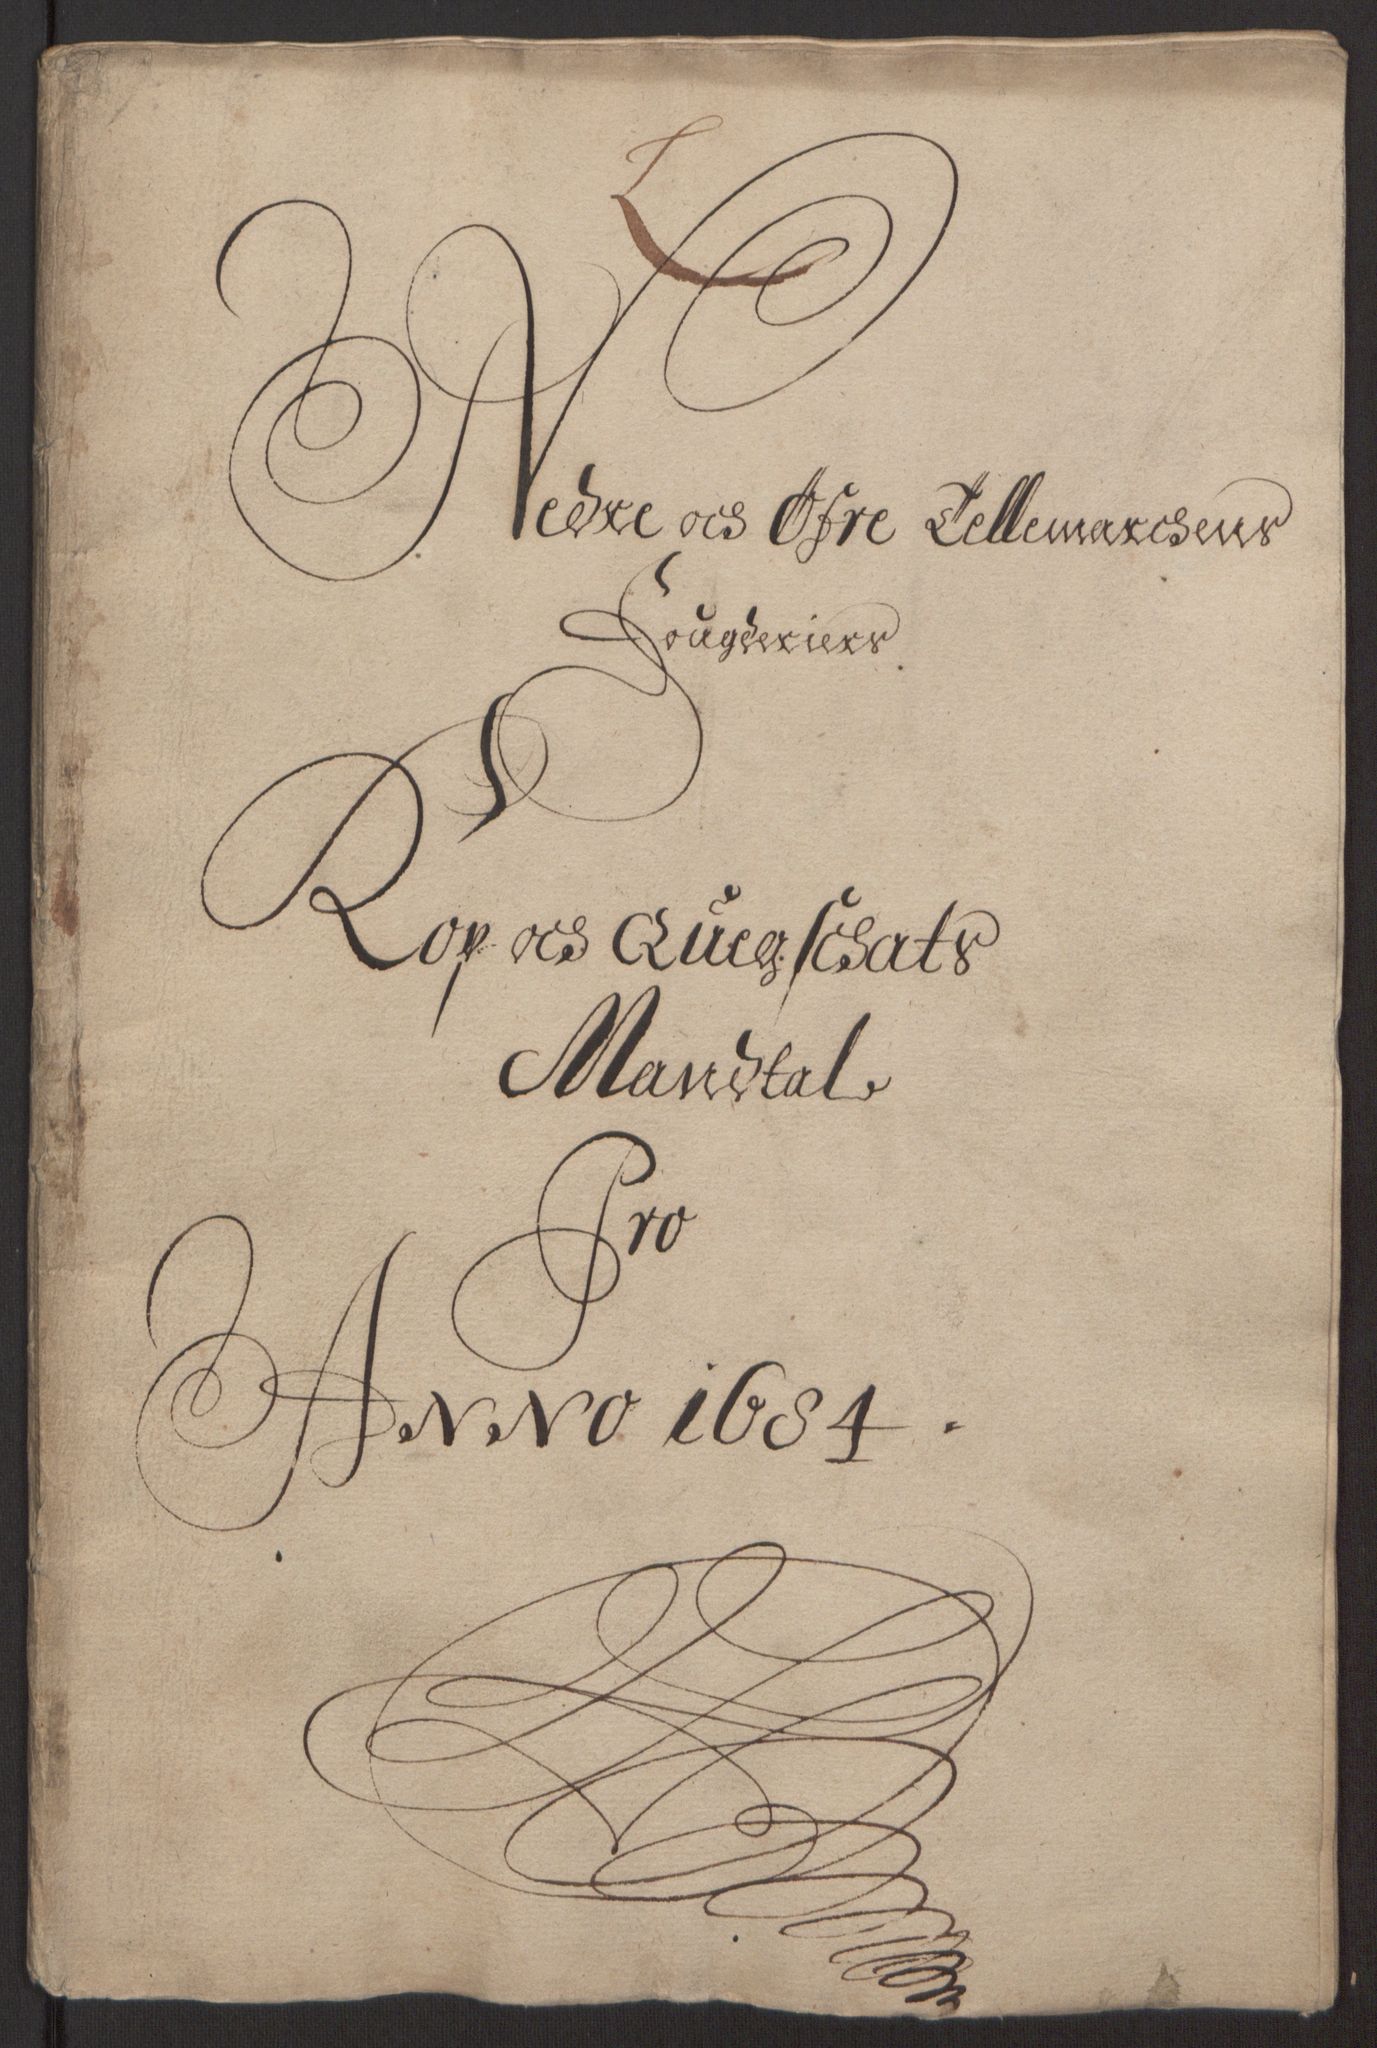 L
Nedre och Øfre Tellemarchens
Fougderiers
Kop och Quegschats
Mandtal
Pro
ANNO 1684.